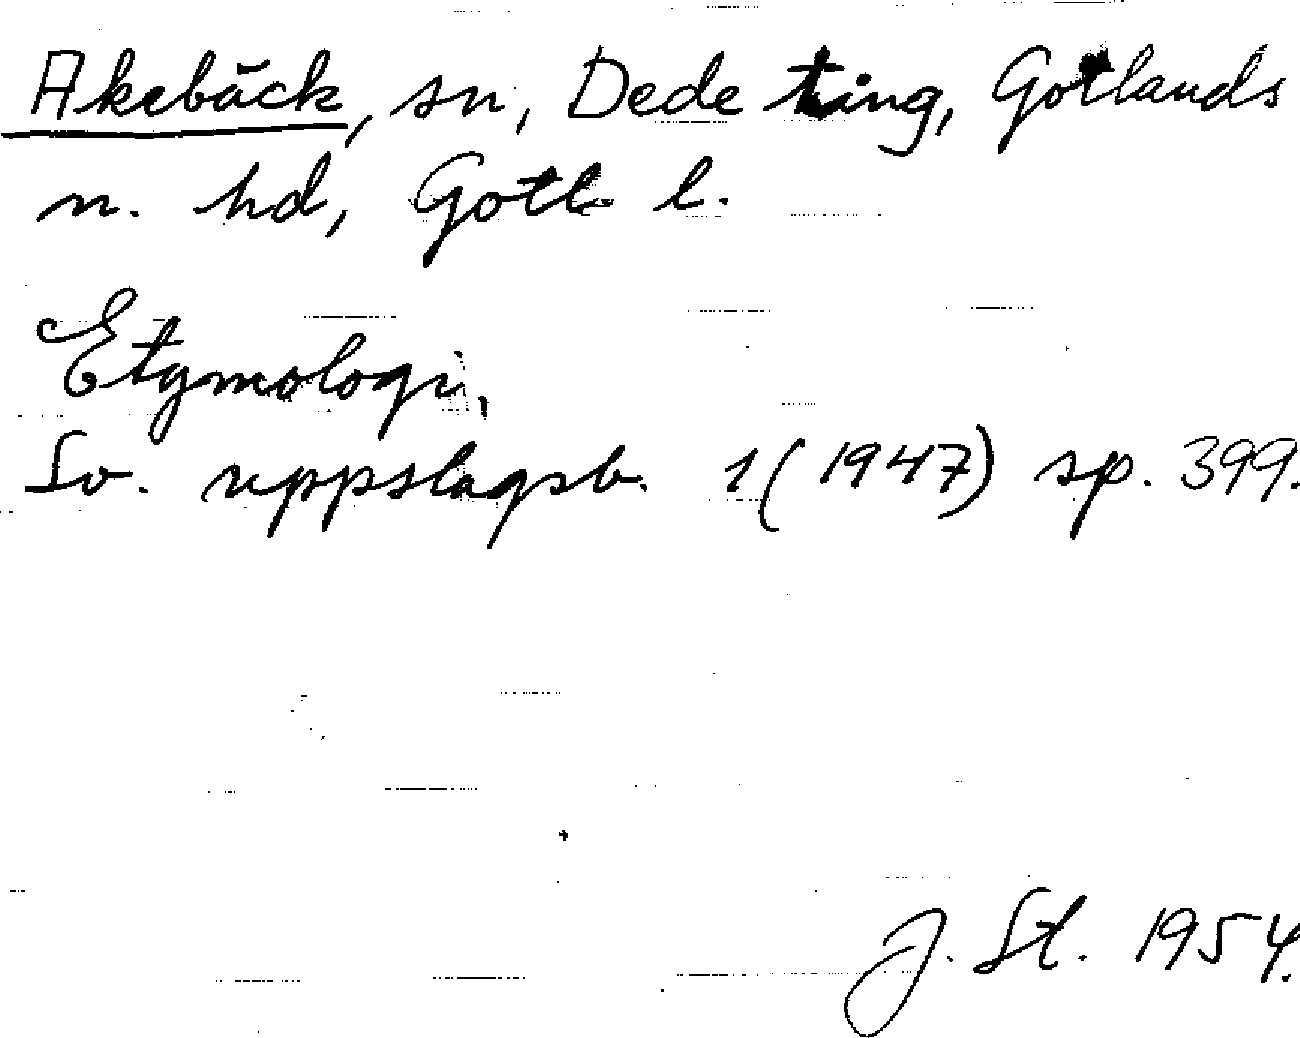 Akebäck, sn, Dede ting, Gotlands
n. hd, Gotl. l.
Etymologi,
Sv. uppslagsb. 1(1947) sp. 399.
J. St. 1954.